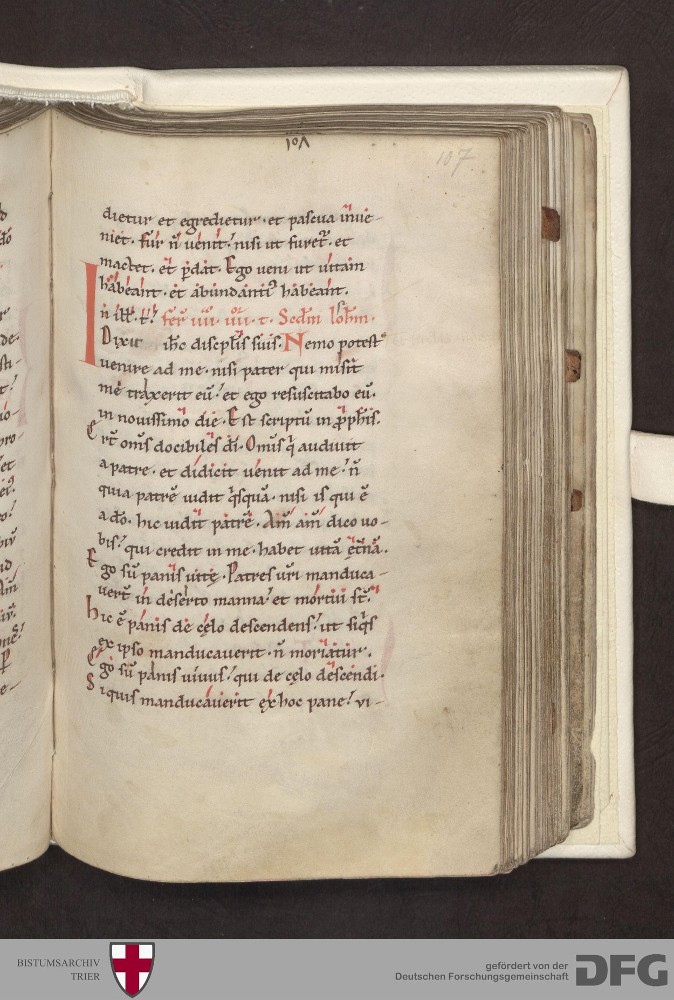 107
dietur et egredietur · et pascua inue-
niet · Fur n̄ uenit! nisi ut furet᷑ · et
mactet · et ꝑdat · Ego ueni ut uitam
habeant · et abundanti᷒ habeant ·
Scdm Ioh̄m ·
Dixit ih̄c discipl̄is suis · Nemo potest
uenire ad me · nisi pater qui misit
me traxerit eū! et ego resuscitabo eū ·
in nouissimo die · Est scriptū in ꝓph̄is ·
Ert̄ om̄s docibiles dī · Om̄is q̄ audiuit
a patre · et didicit uenit ad me! n̄
quia patrē uidit q̄squā · nisi is qui ē
a dō · hic uidit patrē · Am̄ am̄ dico uo-
bis! qui credit in me · habet uitā et̄nā ·
Ego sū panis uitę · Patres ur̄i manduca-
uert̄ in deserto manna! et mortui st̄!
hic ē panis de cęlo descendens! ut siq̄s
ex ipso manducauerit · n̄ moriatur ·
Ego sū panis uiuus! qui de cęlo descendi ·
Siquis manducauerit ex hoc pane! vi-
BISTUMSARCHIV
TRIER
gefördert von der
Deutschen Forschungsgemeinschaft
DFG